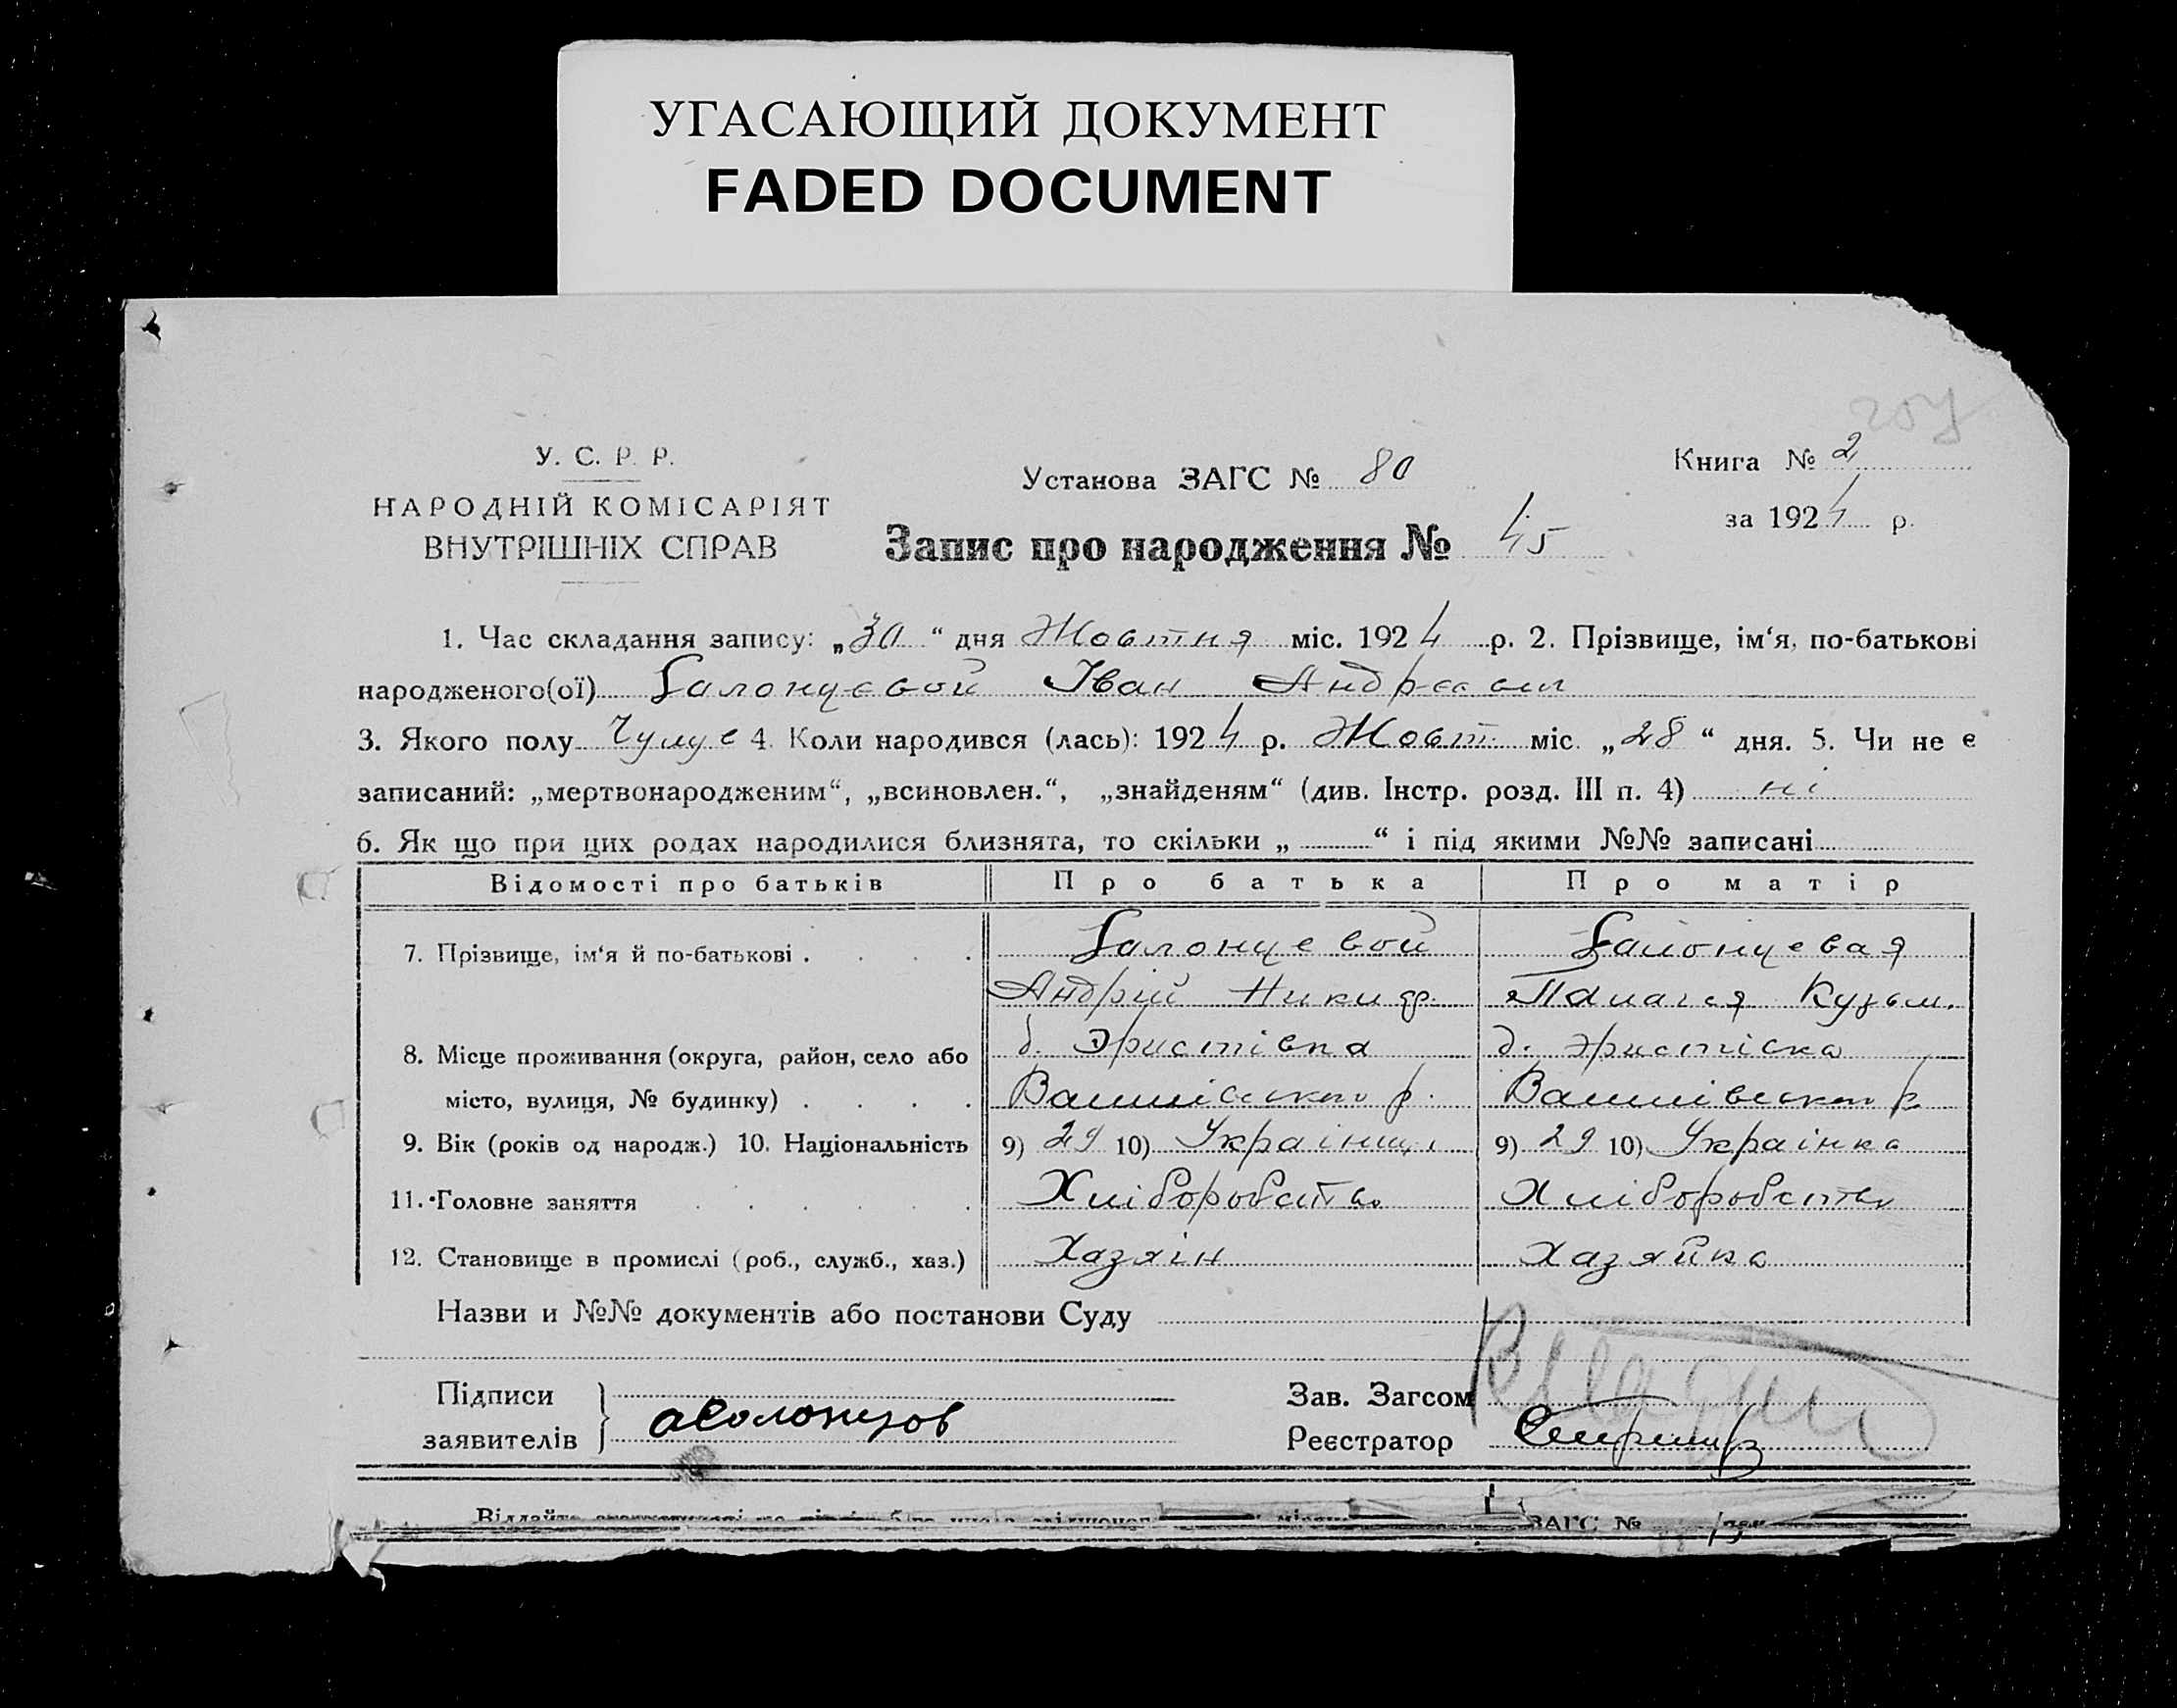 УГАСАЮЩИЙ ДОКУМЕНТ
FADED DOCUMENT
207
У. С. Р. Р.
НАРОДНІЙ КОМІСАРІЯТ
ВНУТРІШНІХ СПРАВ
Установа ЗАГС № 80
Запис про народження № 45
Книга № 2
за 1924 р.
1. Час складання запису: „30“ дня Жовтня міс. 1924 р. 2. Прізвище, ім‘я, по-батькові
народженого(ої) Іван
3. Якого полу 4. Коли народився (лась): 1924 р. Жовт міс. „28“ дня. 5. Чи не є
записаний: „мертвонародженим“, „всиновлен.“, „знайденям“ (див. Інстр. розд. III п. 4) ні
6. Як що при цих родах народилися близнята, то скільки „ “ і під якими №№ записані
Відомості про батьків Про батька Про матір
7. Прізвище, ім‘я й по-батькові .
Андрій Никиф. Кузьм.
8. Місце проживання (округа, район, село або д. Эристівка д. Эристівка
місто, вулиця, № будинку) . р. р.
9. Вік (років од народж.) 10. Національність 9) 29 10) Українец 9) 29 10) Українка
11. Головне заняття Хліборобство Хліборобство
12. Становище в промислі (роб., служб., хаз.) Хазяїн Хазяйка
Назви и №№ документів або постанови Суду
Підписи
заявителів
Зав. Загсом
Реєстратор
ЗАГС №